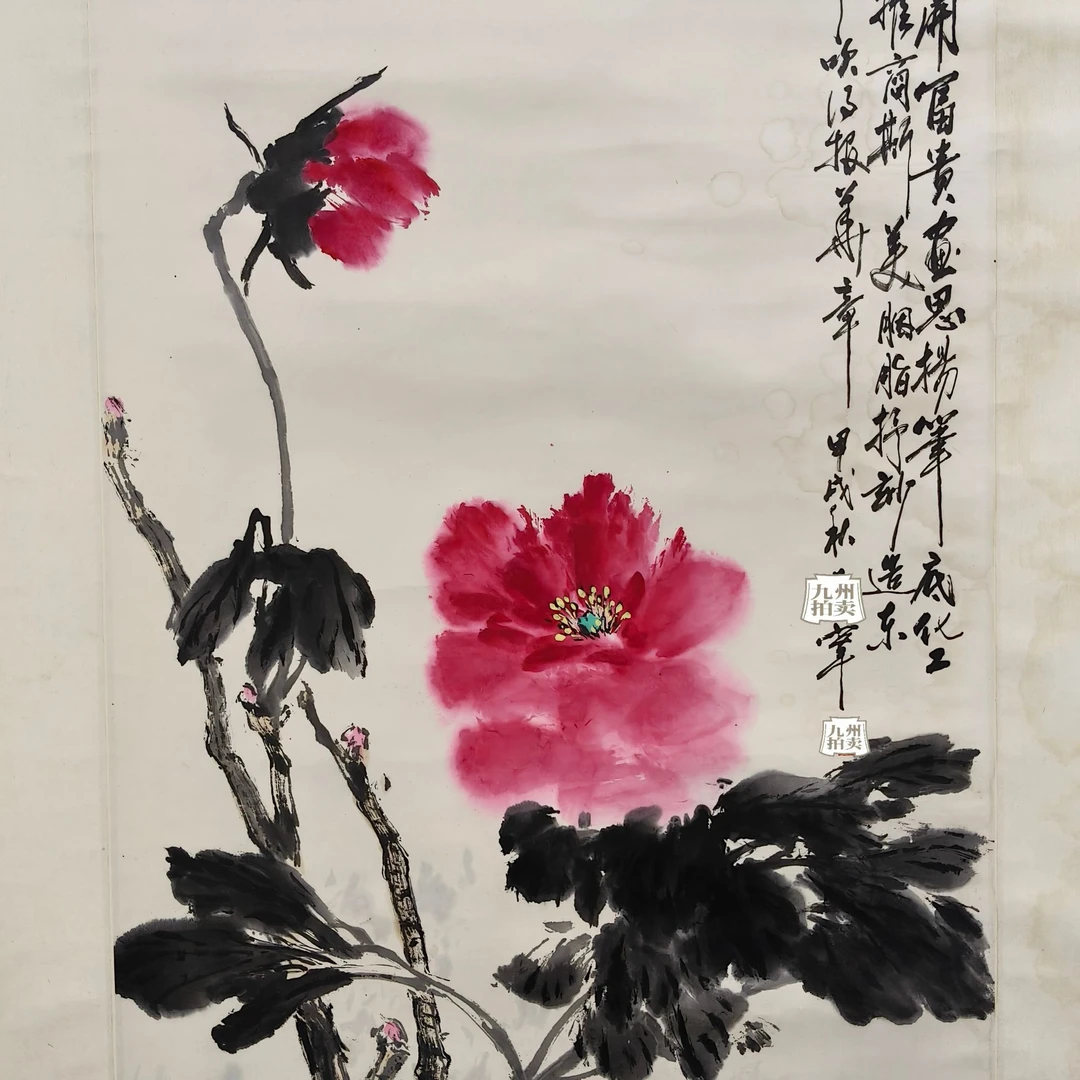 開富貴畫思揚筆底化工
推商斯美胭脂抒妙造东
吹得报華章
甲戌秋
宰
九州
拍卖
九州
拍卖